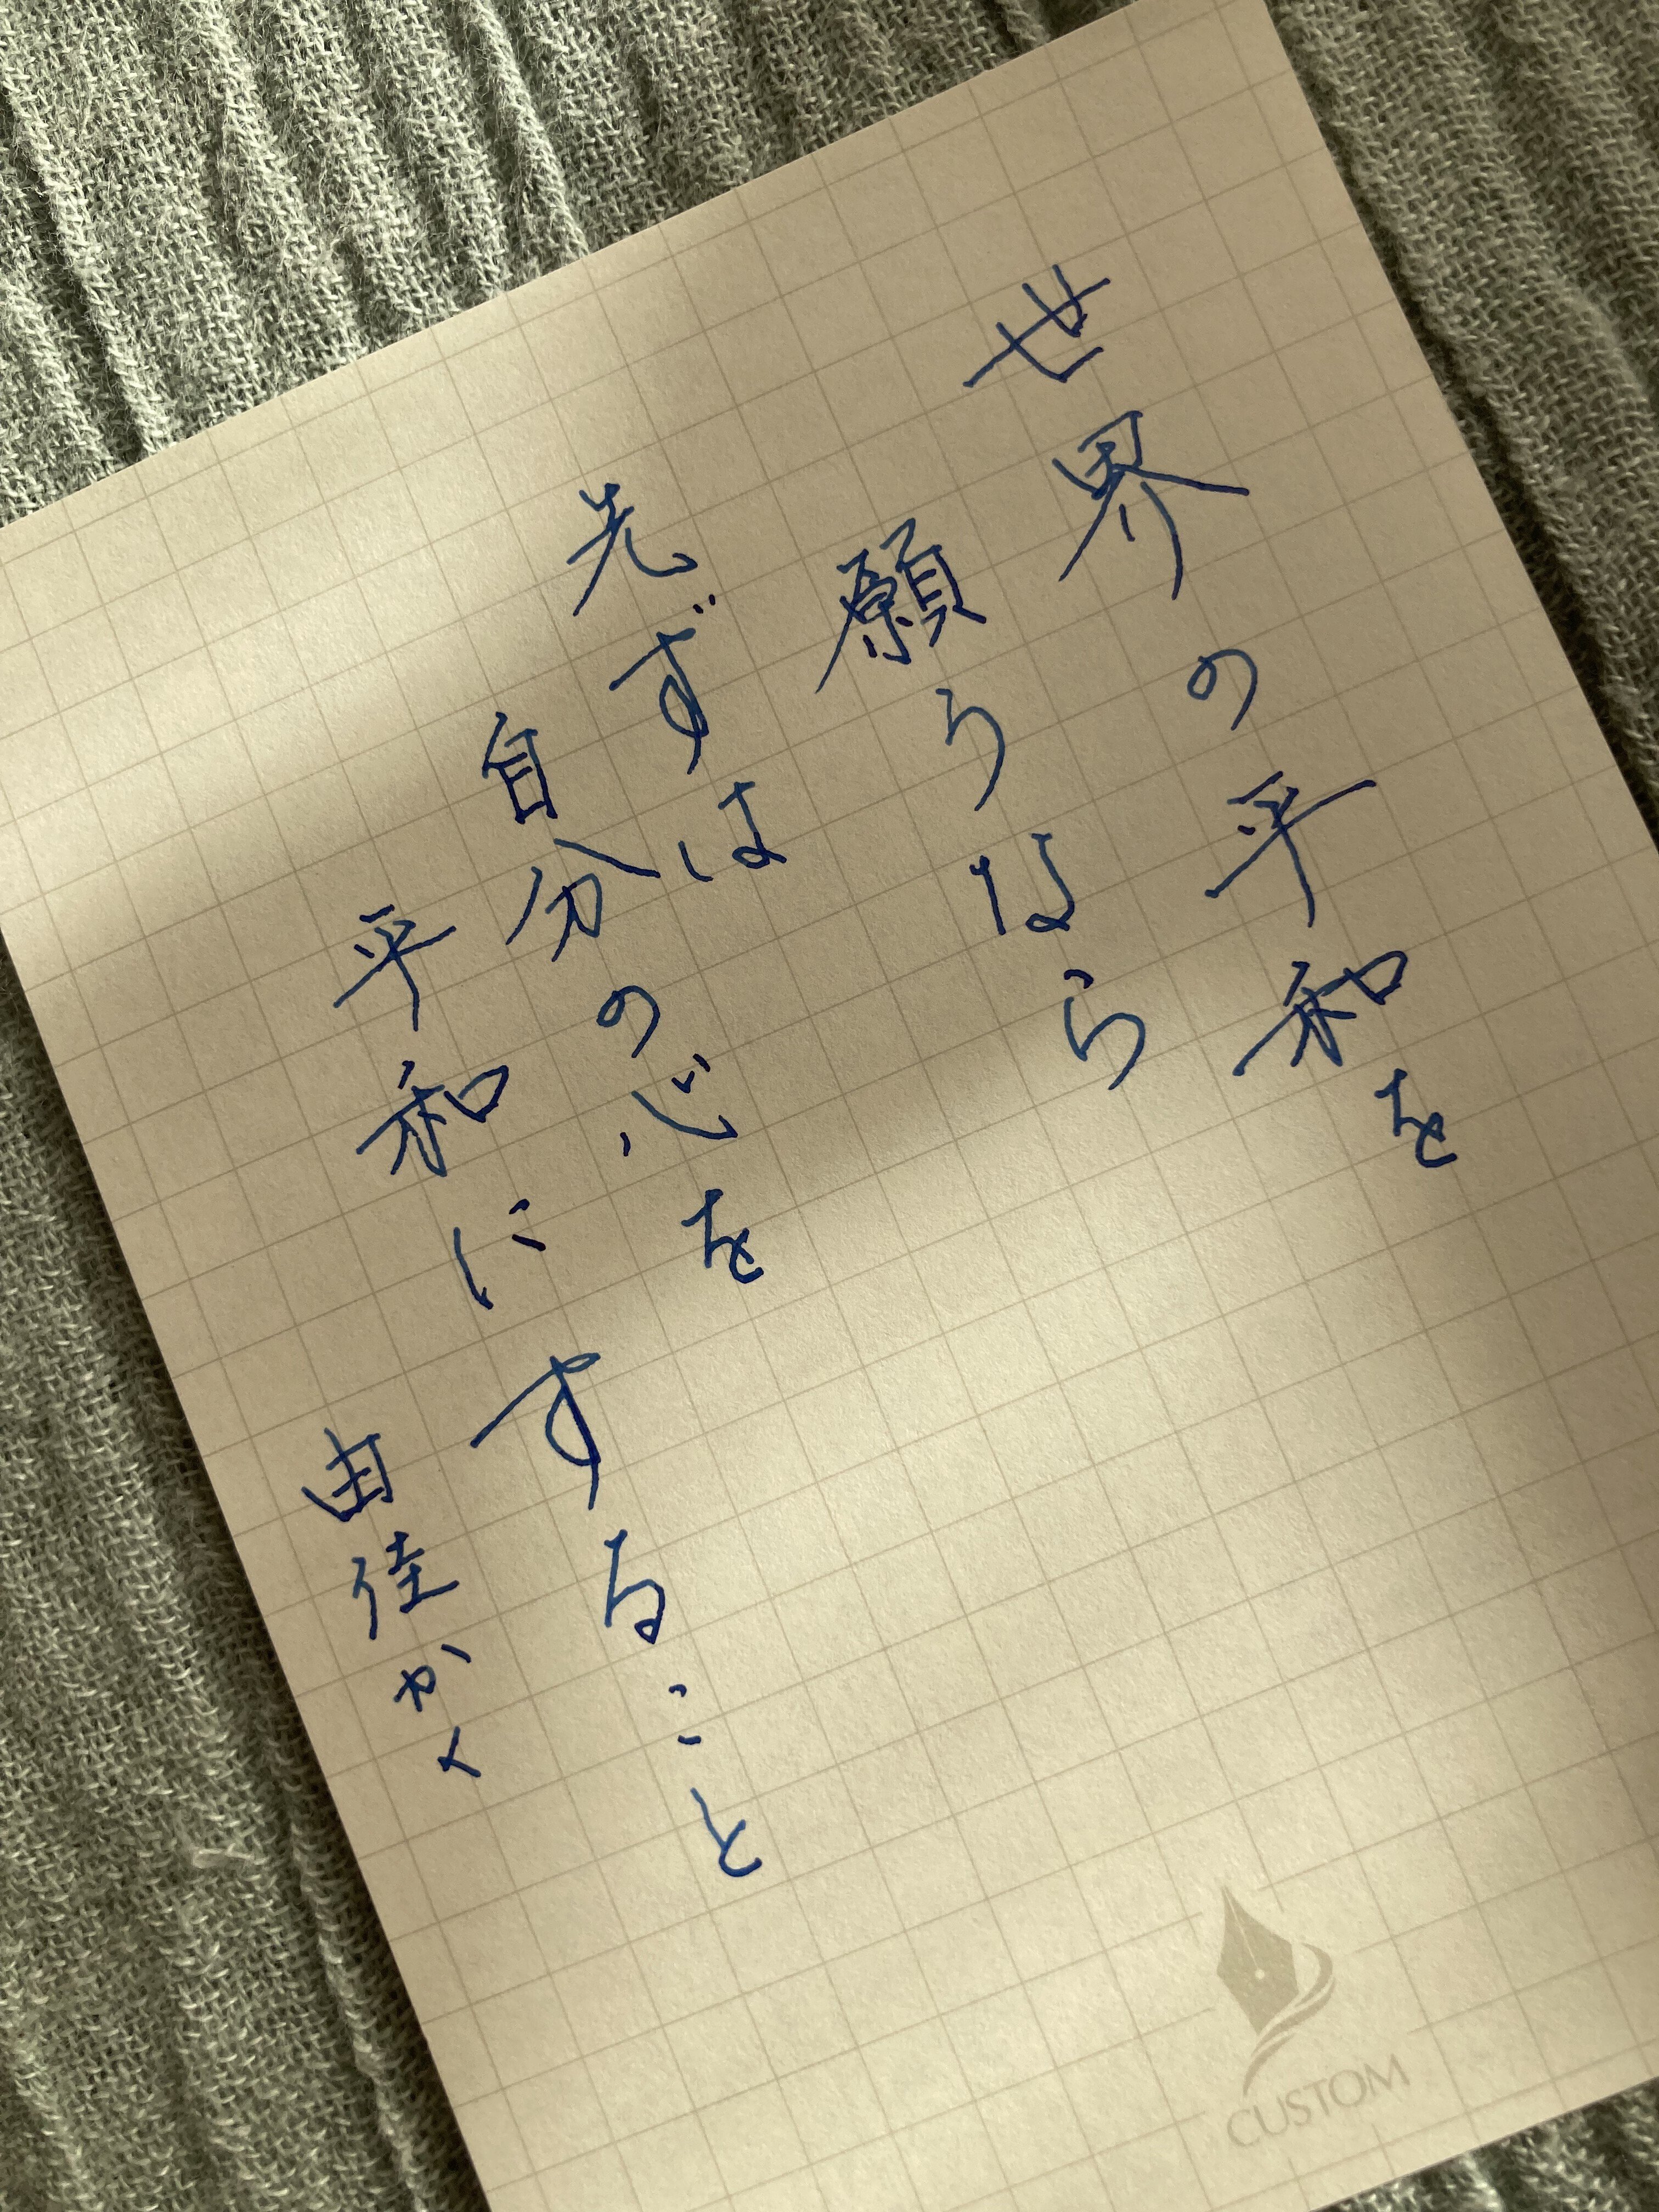 世界の平和を
願うなら
先ずは
自分の心を
平和にすること
由佳かく
CUSTOM